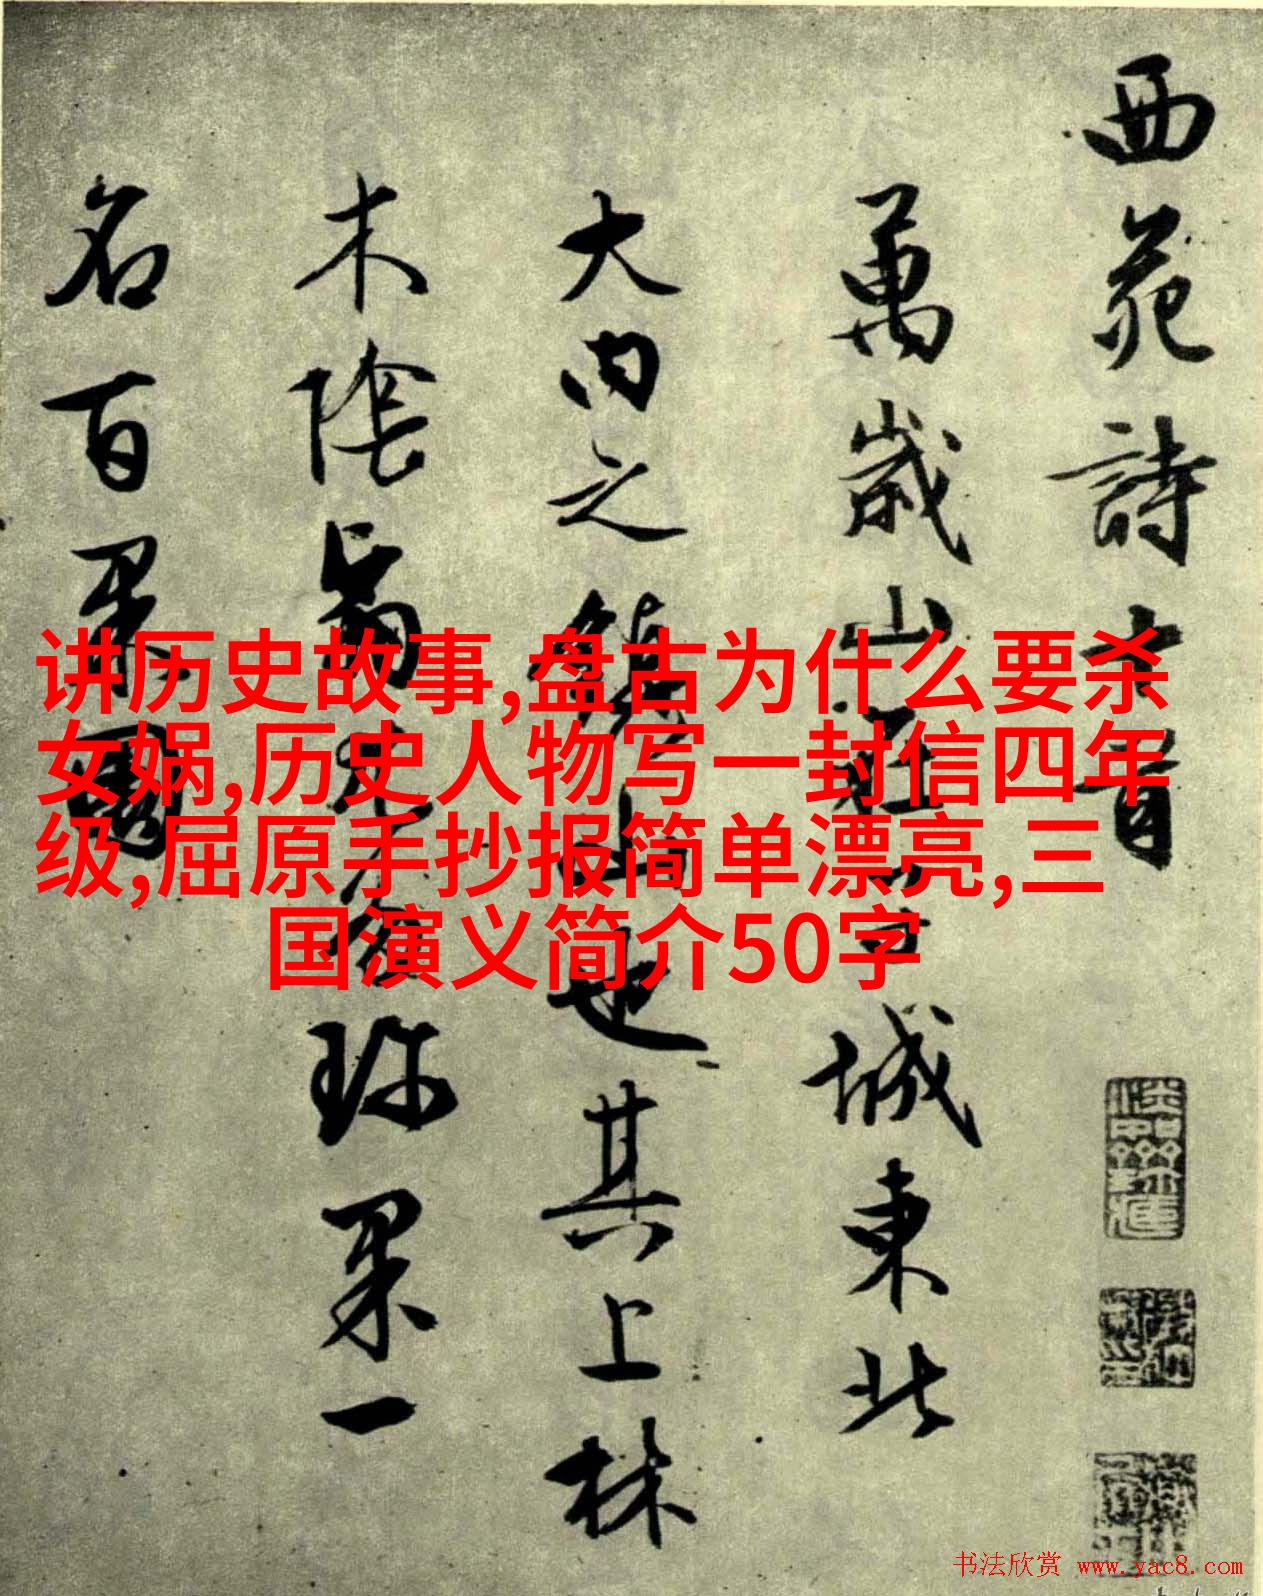 西苑詩十首
萬歲山在皇城東北
大内之鎮山也其上林
木陰翳尤多珍果一
名百果園
讲历史故事,盘古为什么要杀
女娲,历史人物写一封信四年
级,屈原手抄报简单漂亮,三
国演义简介50字
书法欣赏 www.yac8.com